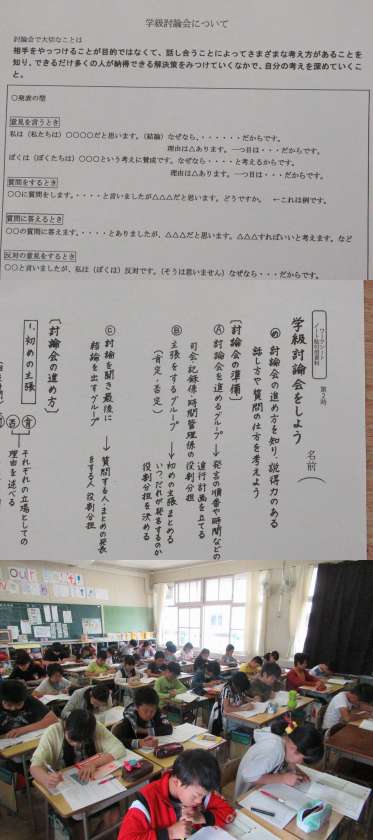 学級討論会について
討論会で大切なことは
相手をやっつけることが目的ではなくて、話し合うことによってさまざまな考え方があることを
知り、できるだけ多くの人が納得できる解決策をみつけていくなかで、自分の考えを深めていくこ
と。
○発表の型
意見を言うとき
私は（私たちは）○○○○だと思います。（結論）なぜなら、・・・・・・だからです。
理由は△あります。一つ目は・・・だからです。
ぼくは（ぼくたちは）○○○という考えに賛成です。なぜなら・・・・と考えるからです。
理由は△あります。一つ目は・・・だからです。
質問をするとき
○○に質問をします。・・・・と言いましたが△△△だと思います。どうですか。 ←これは例です。
質問に答えるとき
○○の質問に答えます。・・・・とありましたが、△△△だと思います。△△△すればいいと考えます。など
反対の意見をするとき
○○と言いましたが、私は（ぼく）は反対です。（そうは思いません）なぜなら・・・だからです。
ワークシート
ノート貼付用資料
第2時
学級討論会をしよう
名前（
め 討論会の進め方を知り、説得力のある
話し方や質問の仕方を考えよう
〔討論会の準備〕
Ⓐ 討論会を進めるグループ → 発言の順番や時間などの
進行計画を立てる
司会・記録係・時間管理係の役割分担
Ⓑ 主張をするグループ → 初めの主張まとめる
（肯定・否定）
いつ、だれが発言するのか
役割分担を決める
Ⓒ 討論を聞き最後に
結論を出すグループ → 質問する人・まとめの発表
をする人 役割分担
〔討論会の進め方〕
1．初めの主張
肯
否
それぞれの立場としての
理由を述べる
our